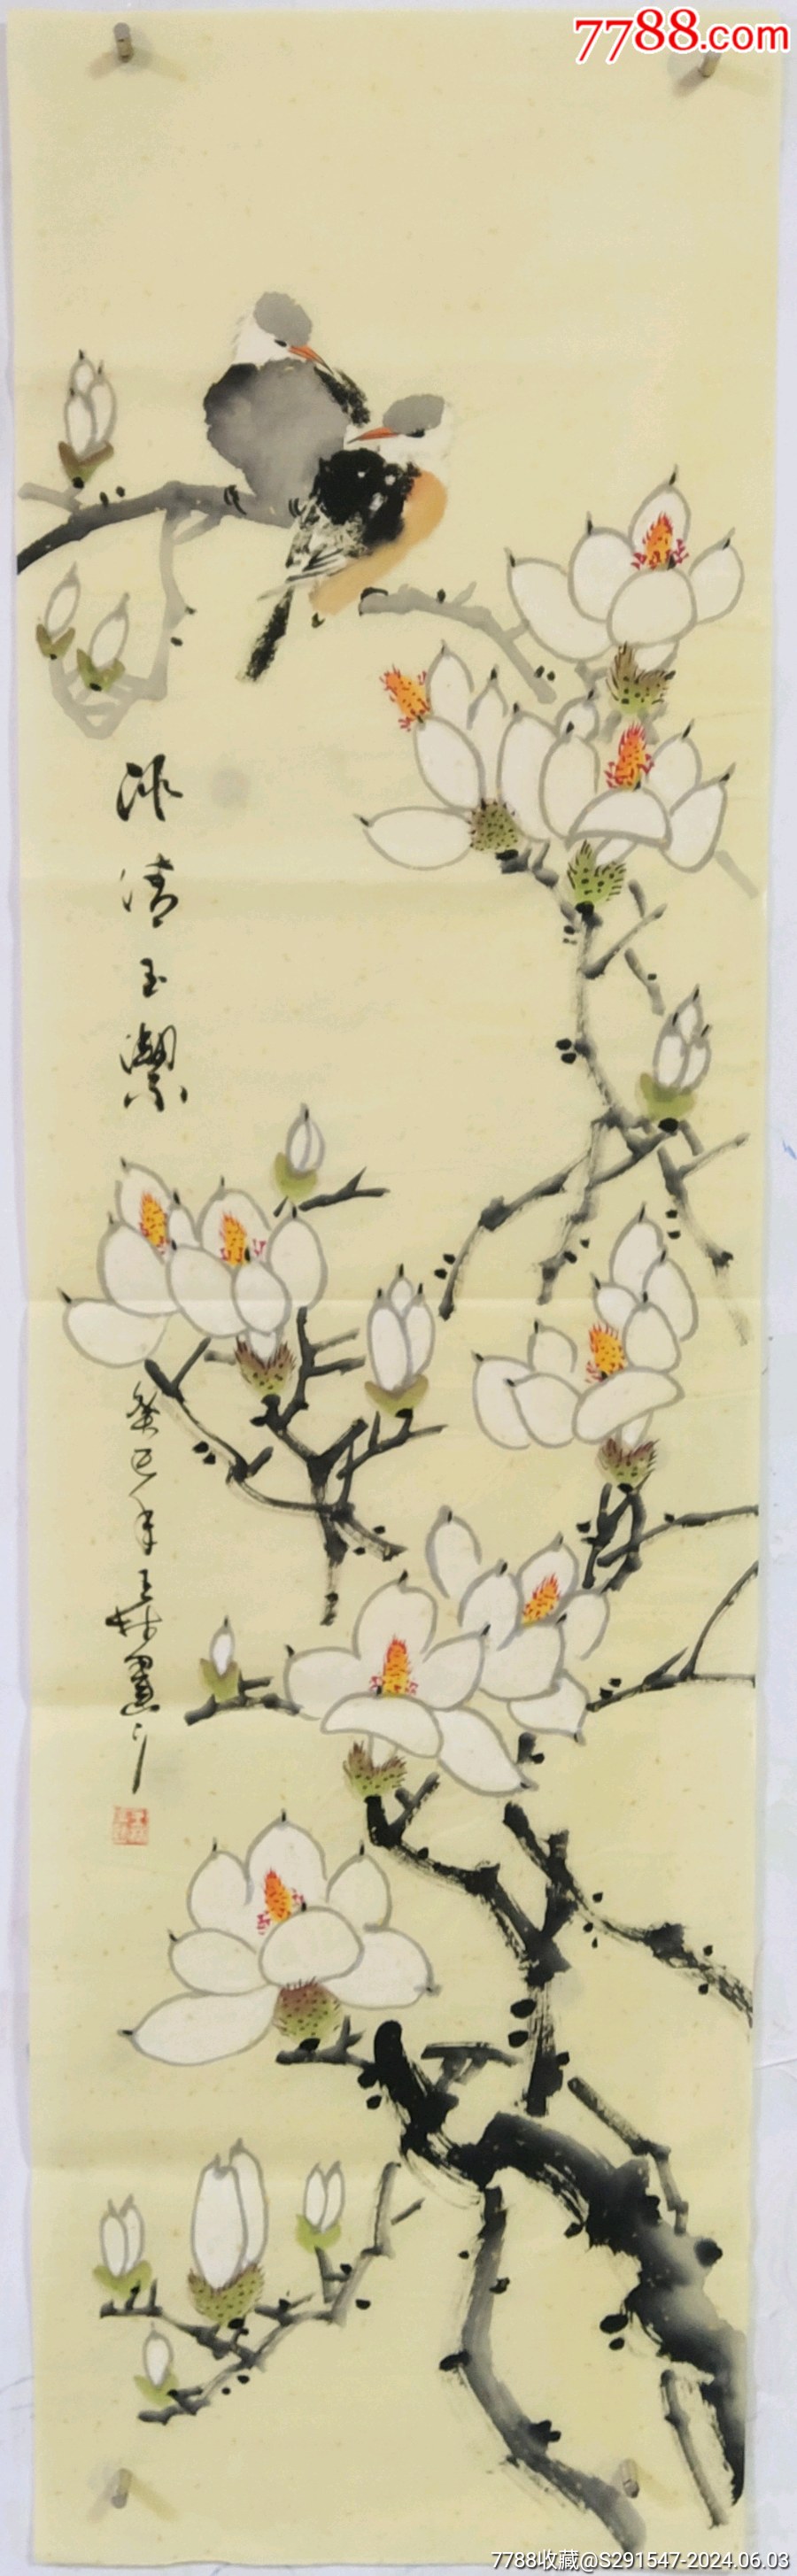 7788.com
冰清玉潔
癸巳年王 畫
7788收藏@S291547-2024.06.03